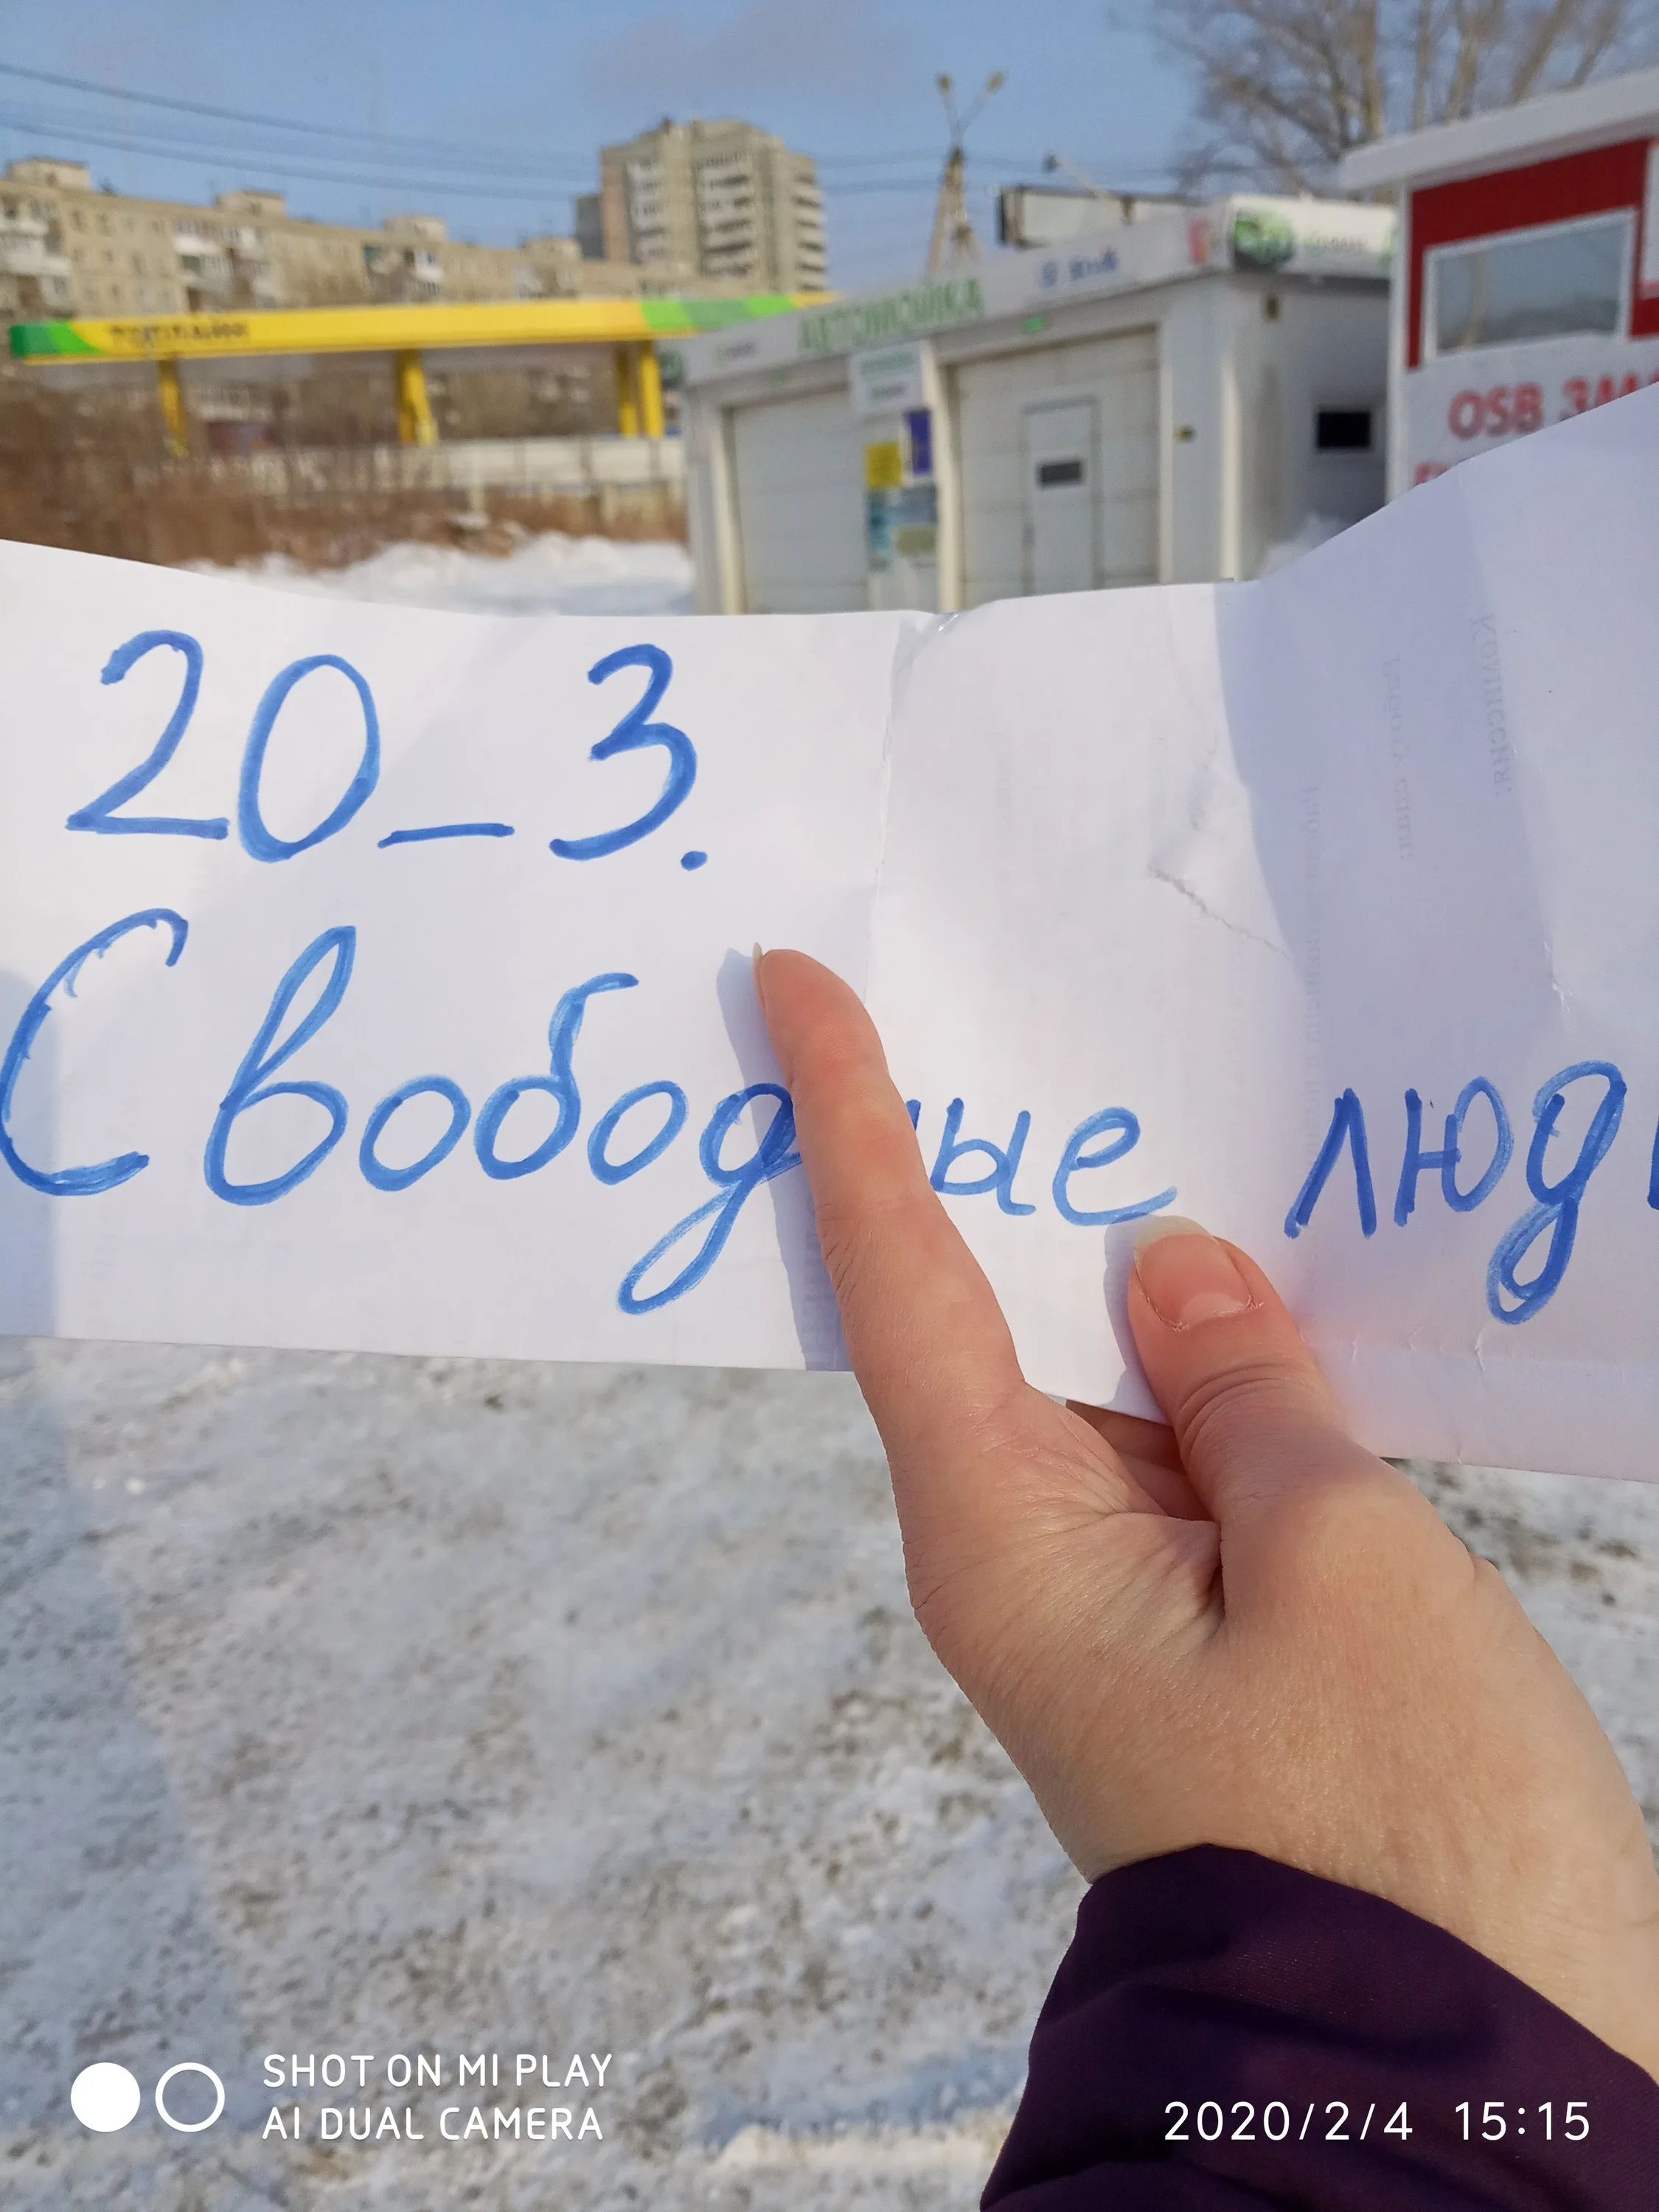 АВТОМОЙКА
OSB
20_3.
Свободные люд
SHOT ON MI PLAY
AI DUAL CAMERA
2020/2/4 15:15